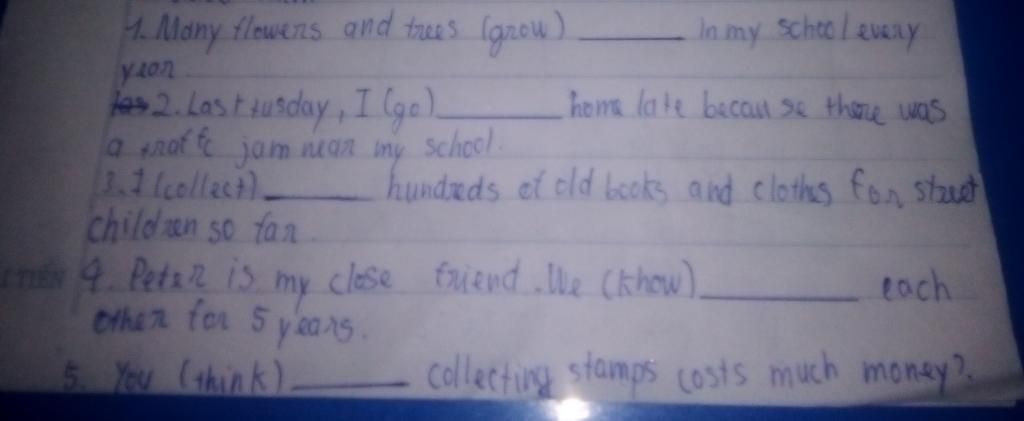 1. Many flowers and trees (grow) ______ in my school every
year.
2. Last tusday, I (go) ______ home late because there was
a traffc jam near my school.
3. I (collect) ______ hundreds of old books and clothes for street
children so far.
4. Peter is my close friend. We (know) ______ each
other for 5 years.
5. You (think) ______ collecting stamps costs much money?